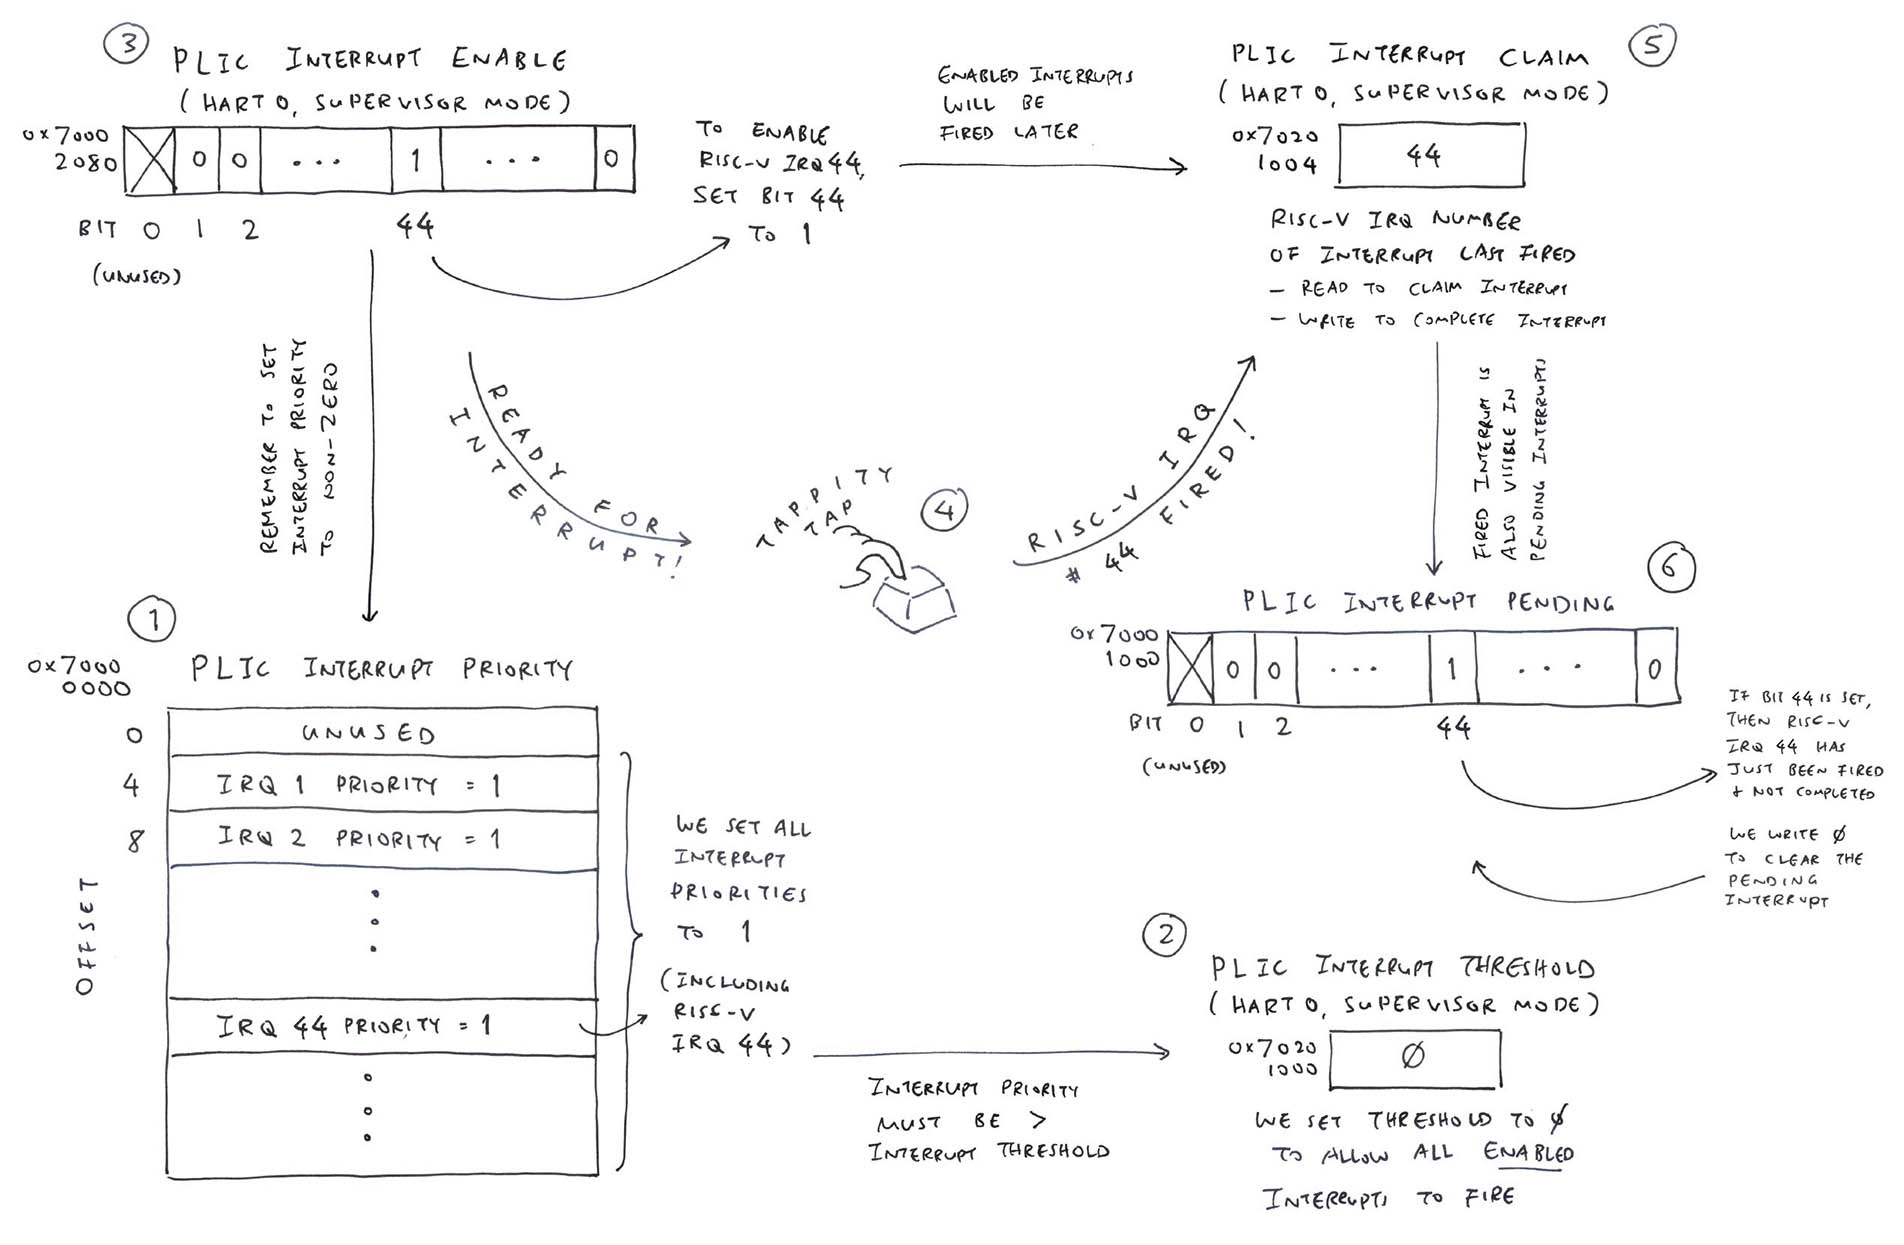 ③
PLIC INTERRUPT ENABLE
(HART 0, SUPERVISOR MODE)
0x7000
2080
0 0 ... 1 ... 0
BIT 0 1 2 44
(UNUSED)
TO ENABLE
RISC-V IRQ 44,
SET BIT 44
TO 1
ENABLED INTERRUPTS
WILL BE
FIRED LATER
⑤
PLIC INTERRUPT CLAIM
(HART 0, SUPERVISOR MODE)
0x7020
1004
44
RISC-V IRQ NUMBER
OF INTERRUPT LAST FIRED
- READ TO CLAIM INTERRUPT
- WRITE TO COMPLETE INTERRUPT
REMEMBER TO SET
INTERRUPT PRIORITY
TO NON-ZERO
READY FOR
INTERRUPT!
TAPPITY
TAP
④
RISC-V IRQ
# 44 FIRED!
FIRED INTERRUPT IS
ALSO VISIBLE IN
PENDING INTERRUPTS
⑥
PLIC INTERRUPT PENDING
0x7000
1000
0 0 ... 1 ... 0
BIT 0 1 2 44
(UNUSED)
IF BIT 44 IS SET,
THEN RISC-V
IRQ 44 HAS
JUST BEEN FIRED
+ NOT COMPLETED
WE WRITE Ø
TO CLEAR THE
PENDING
INTERRUPT
①
0x7000
0000
PLIC INTERRUPT PRIORITY
0 UNUSED
4 IRQ 1 PRIORITY = 1
8 IRQ 2 PRIORITY = 1
OFFSET
IRQ 44 PRIORITY = 1
WE SET ALL
INTERRUPT
PRIORITIES
TO 1
(INCLUDING
RISC-V
IRQ 44)
INTERRUPT PRIORITY
MUST BE >
INTERRUPT THRESHOLD
②
PLIC INTERRUPT THRESHOLD
(HART 0, SUPERVISOR MODE)
0x7020
1000
Ø
WE SET THRESHOLD TO Ø
TO ALLOW ALL ENABLED
INTERRUPTS TO FIRE